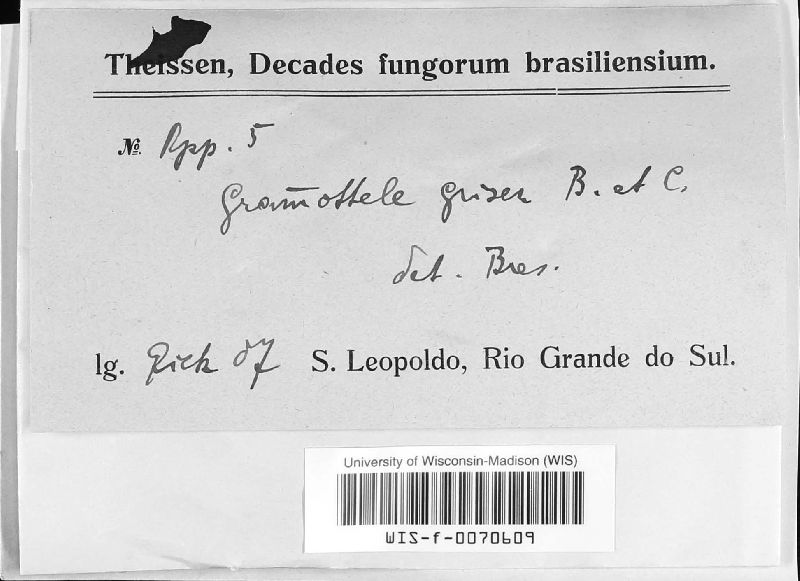 Theissen, Decades fungorum brasiliensium.
№. App. 5
Gram̅ottele grisea B. et C.
det. Bres.
lg. Rick 07 S. Leopoldo, Rio Grande do Sul.
University of Wisconsin-Madison (WIS)
WIS-f-0070609